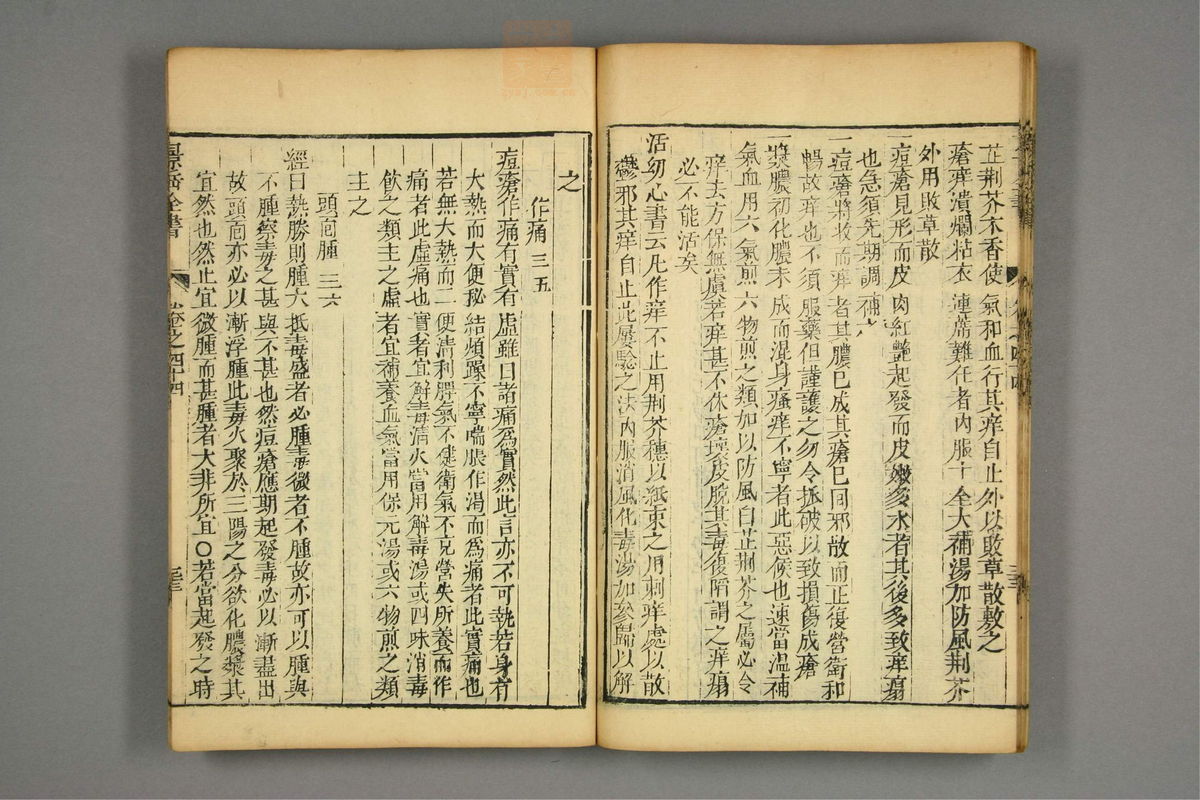 芷荆芥木香使氣和血行其痒自止外以敗草散敷之
瘡痒潰爛粘衣連蓆難任者內服十全大補湯加防風荆芥
外用敗草散
一痘瘡見形而皮肉紅艷起發而皮嫩多水者其後多致痒瘍
也急須先期調補
一痘瘡將收而痒者其膿已成其瘡已回邪散而正復營衛和
暢故痒也不須服藥但謹護之勿令抓破以致損傷成瘡
一漿膿初化膿未成而混身瘙痒不寧者此惡候也速當溫補
氣血用六氣煎六物煎之類加以防風白芷荆芥之屬必令
痒去方保無虞若痒甚不休瘡壞皮脫其毒復陷謂之痒瘍
必不能活矣
活幼心書云凡作痒不止用荆芥穗以紙束之用刺痒處以散
鬱邪其痒自止此屢驗之法內服消風化毒湯加參歸以解
之
作痛 三五
痘瘡作痛有實有虛雖曰諸痛為實然此言亦不可執若身有
大熱而大便秘結煩躁不寧喘脹作渴而為痛者此實痛也
若無大熱而二便清利脾氣不健衛氣不克營失所養而作
痛者此虛痛也實者宜解毒清火當用解毒湯或四味消毒
飲之類主之虛者宜補養血氣當用保元湯或六物煎之類
主之
頭面腫 三六
經曰熱勝則腫大抵毒盛者必腫毒微者不腫故亦可以腫與
不腫察毒之甚與不甚也然痘瘡應期起發毒必以漸盡出
故頭面亦必以漸浮腫此毒火聚於三陽之分欲化膿漿其
宜然也然止宜微腫而甚腫者大非所宜〇若當起發之時
景岳全書 卷之四十四